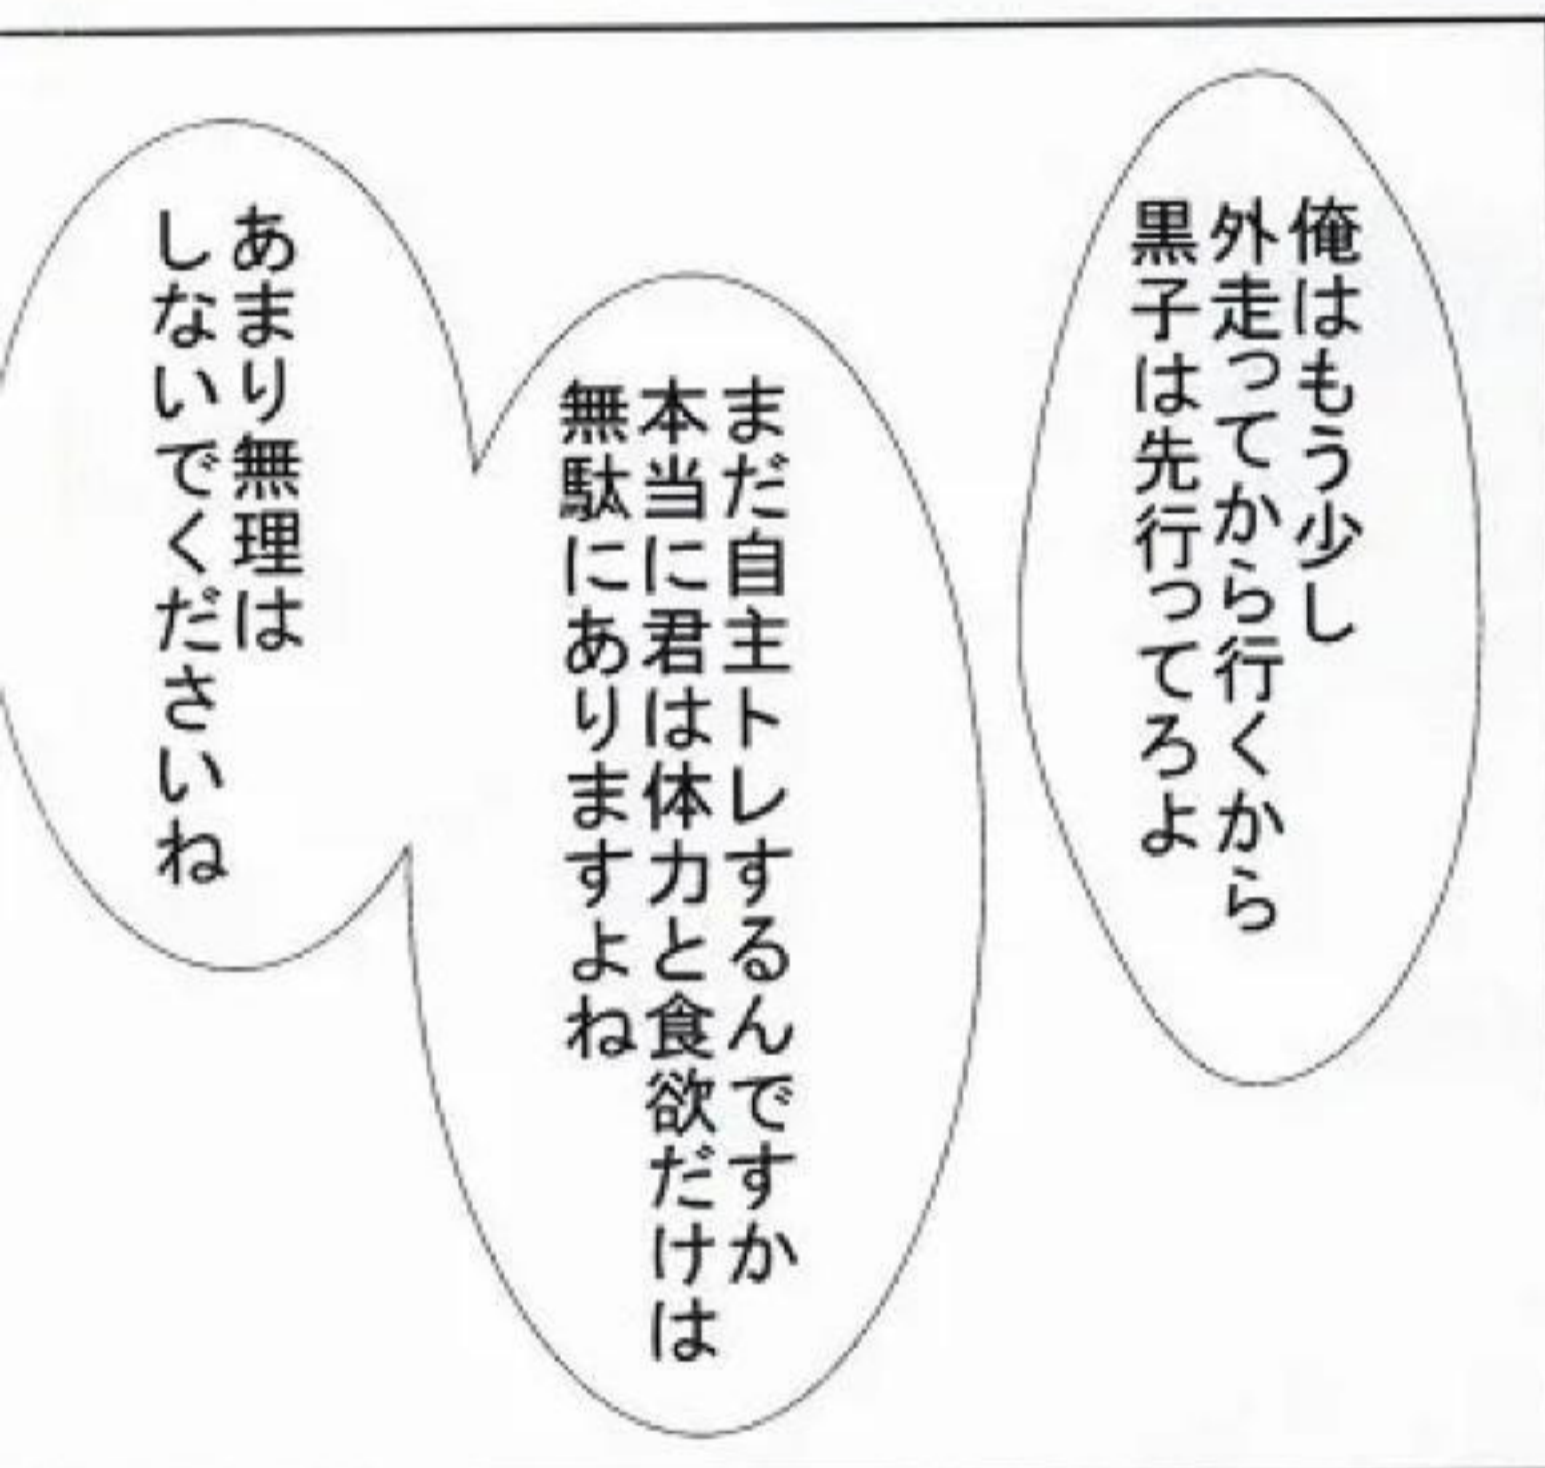 俺はもう少し
外走ってから行くから
黒子は先行ってろよ
まだ自主トレするんですか
本当に君は体力と食欲だけは
無駄にありますよね
あまり無理は
しないでくださいね